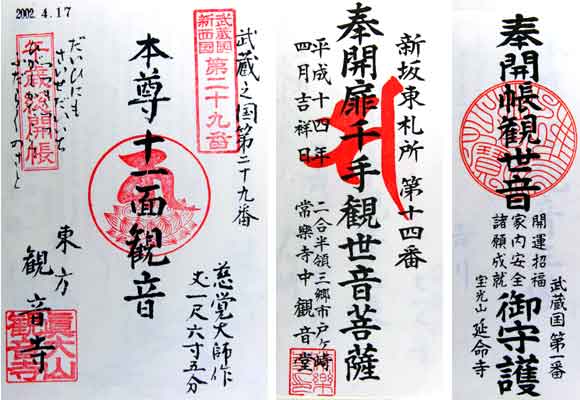 2002 4.17
武蔵国
新西国
第二十九番
武蔵之国第二十九番
本尊十一面観音
慈覚大師作
丈一尺六寸五分
だいひにも
開帳
東方
観音寺
新坂東札所 第十四番
奉開扉千手観世音菩薩
平成十四年
四月吉祥日
二合半領三郷市戸ヶ崎
常楽寺中観音堂
奉開帳観世音御守護
開運招福
家内安全
諸願成就
武蔵国第一番
宝光山 延命寺